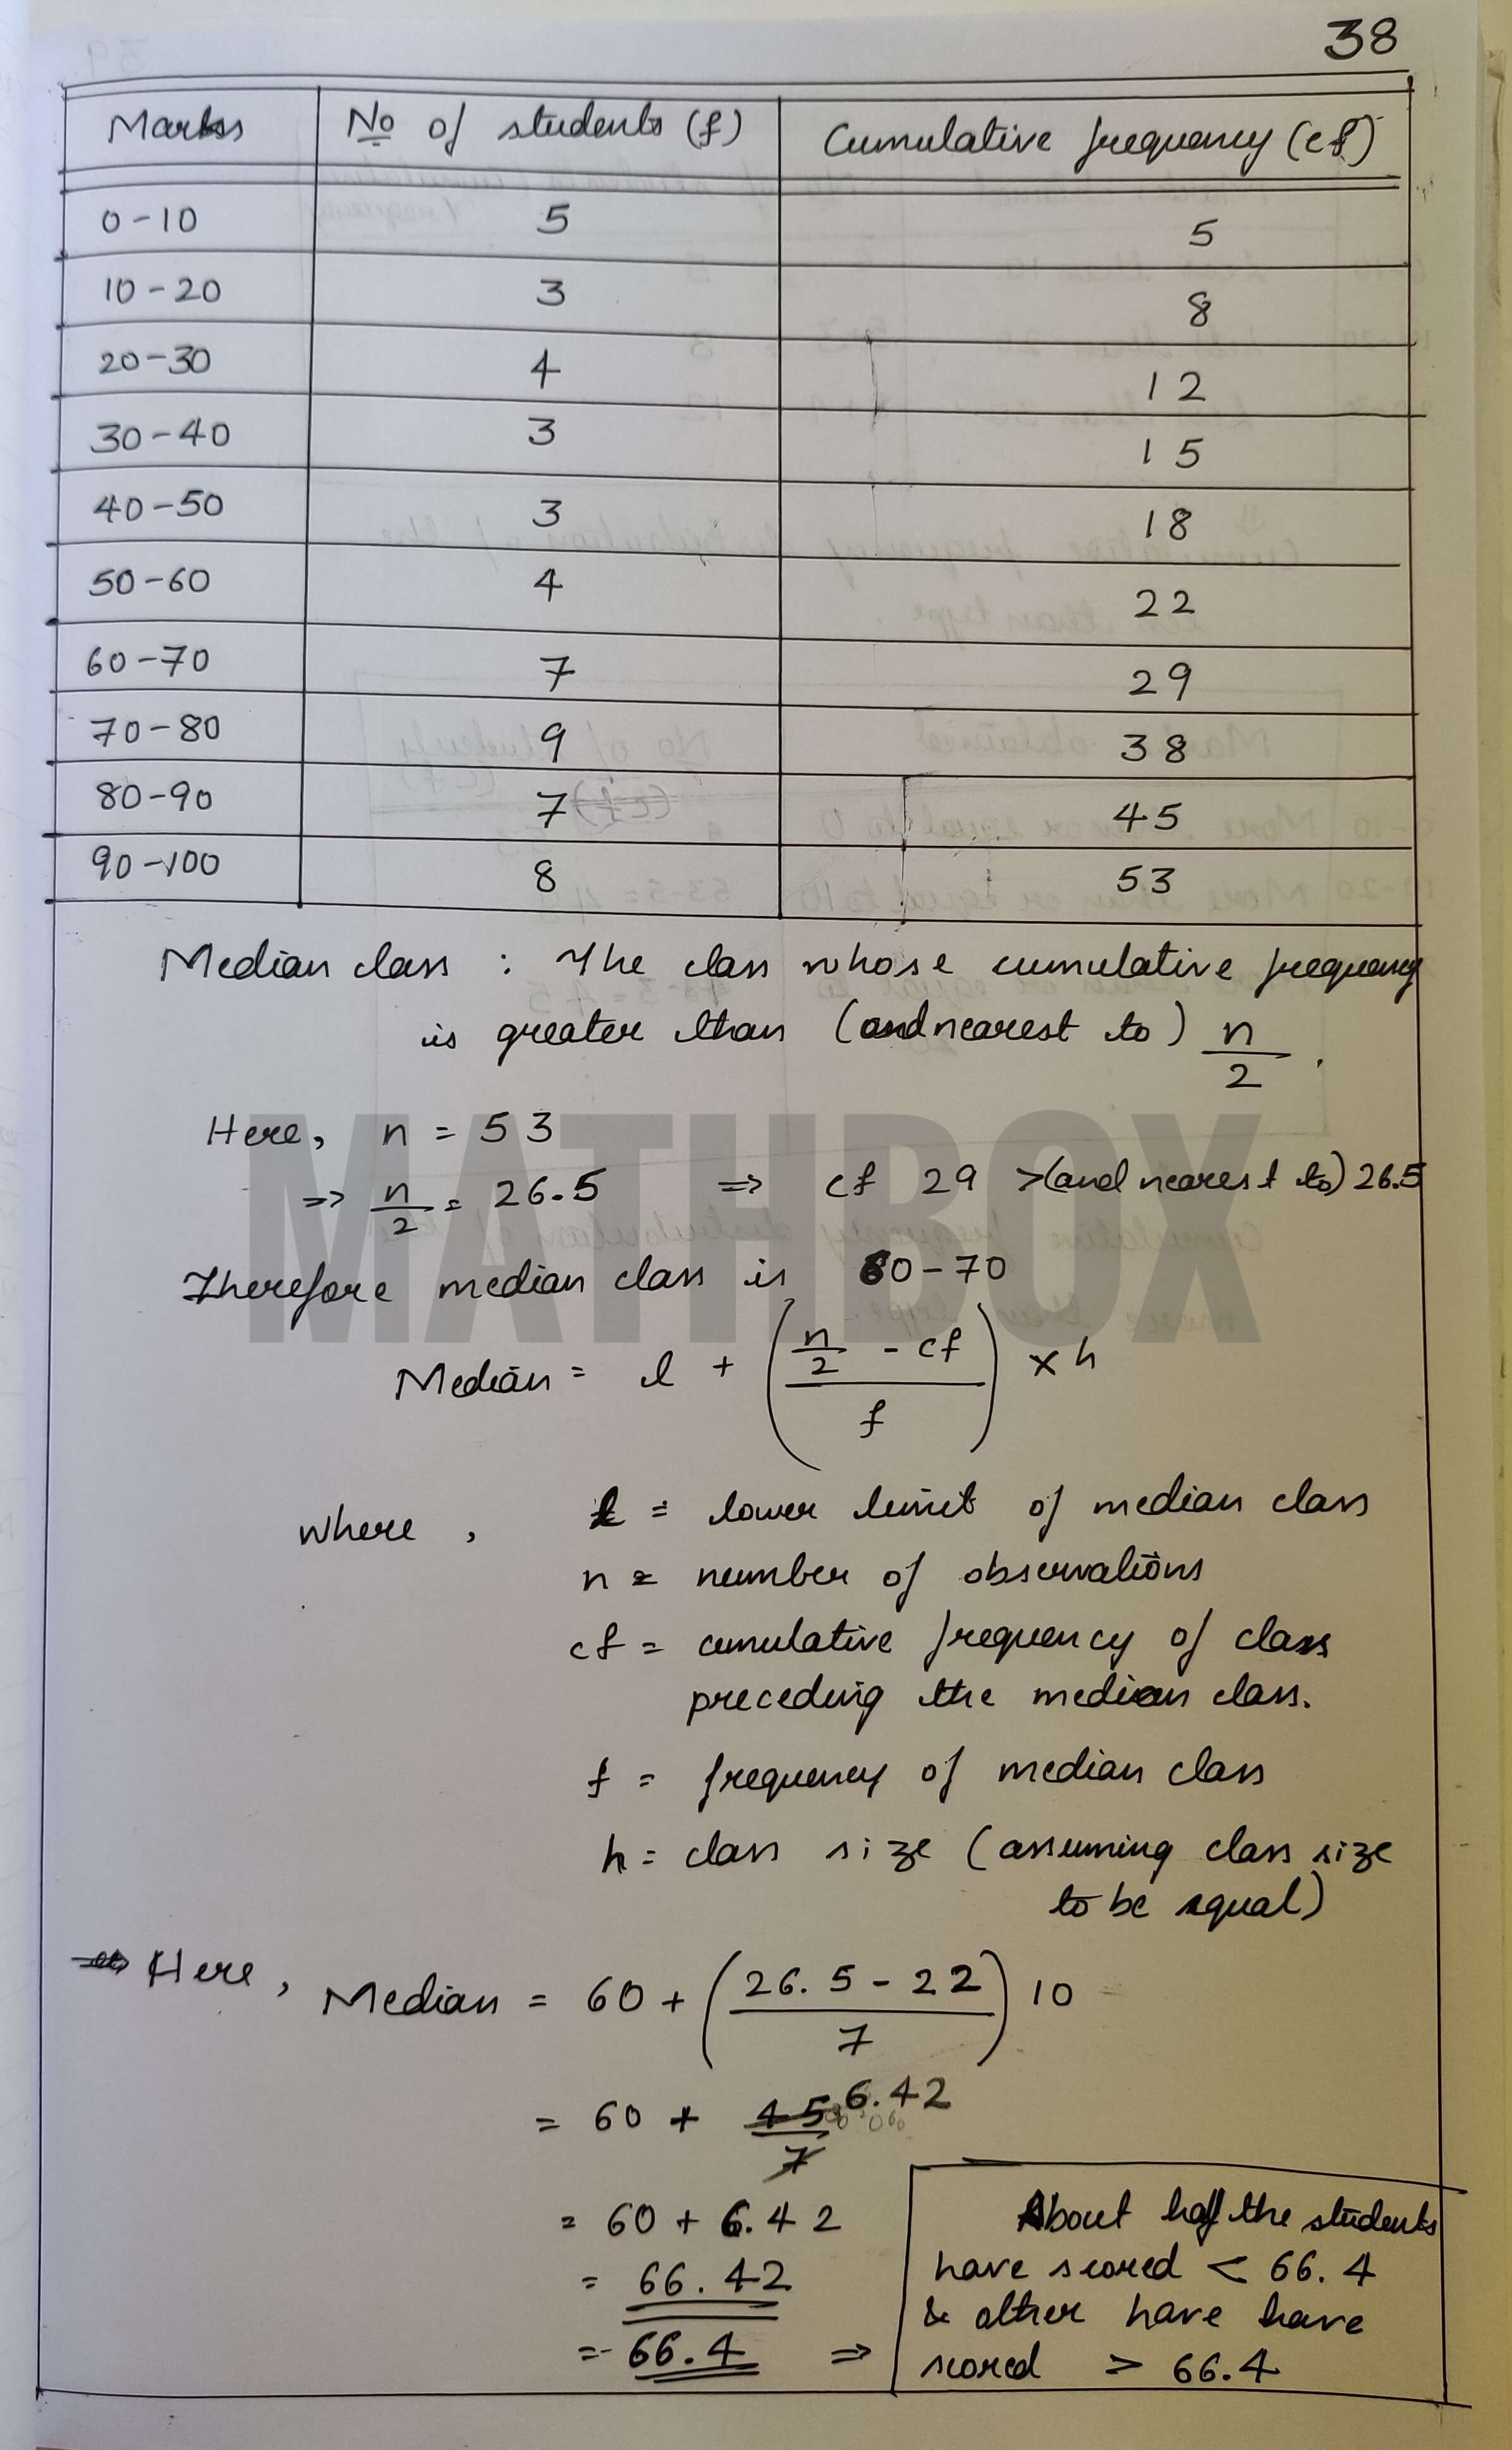 38
Marks No of students (f) Cumulative frequency (cf)
0-10 5 5
10-20 3 8
20-30 4 12
30-40 3 15
40-50 3 18
50-60 4 22
60-70 7 29
70-80 9 38
80-90 7 45
90-100 8 53
Median class : The class whose cumulative frequency
is greater than (and nearest to) n/2 .
Here, n = 53
⇒ n/2 = 26.5 ⇒ cf 29 >(and nearest to) 26.5
Therefore median class is 60-70
MATHBOX
Median = l + ( (n/2 - cf) / f ) × h
where , l = lower limit of median class
n = number of observations
cf = cumulative frequency of class
preceding the median class.
f = frequency of median class
h = class size (assuming class size
to be equal)
Here, Median = 60 + ( (26.5 - 22) / 7 ) 10
= 60 + 45/7 6.42
= 60 + 6.42
= 66.42
= 66.4 ⇒
About half the students
have scored < 66.4
& other have have
scored > 66.4